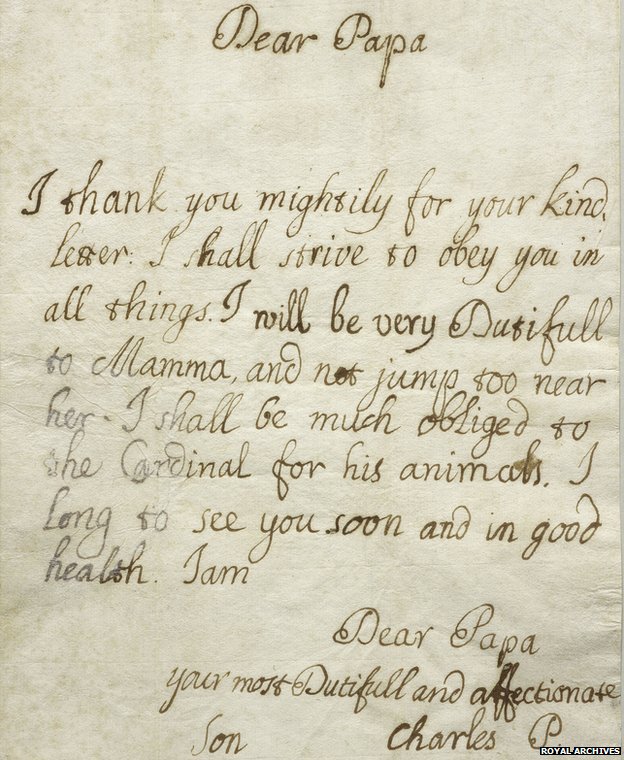 Dear Papa
I thank you mightily for your kind
letter. I shall strive to obey you in
all things. I will be very Dutifull
to Mamma, and not jump too near
her. I shall be much obliged to
the Cardinal for his animals. I
long to see you soon and in good
health. I am
Dear Papa
your most Dutifull and affectionate
Son Charles P
ROYAL ARCHIVES